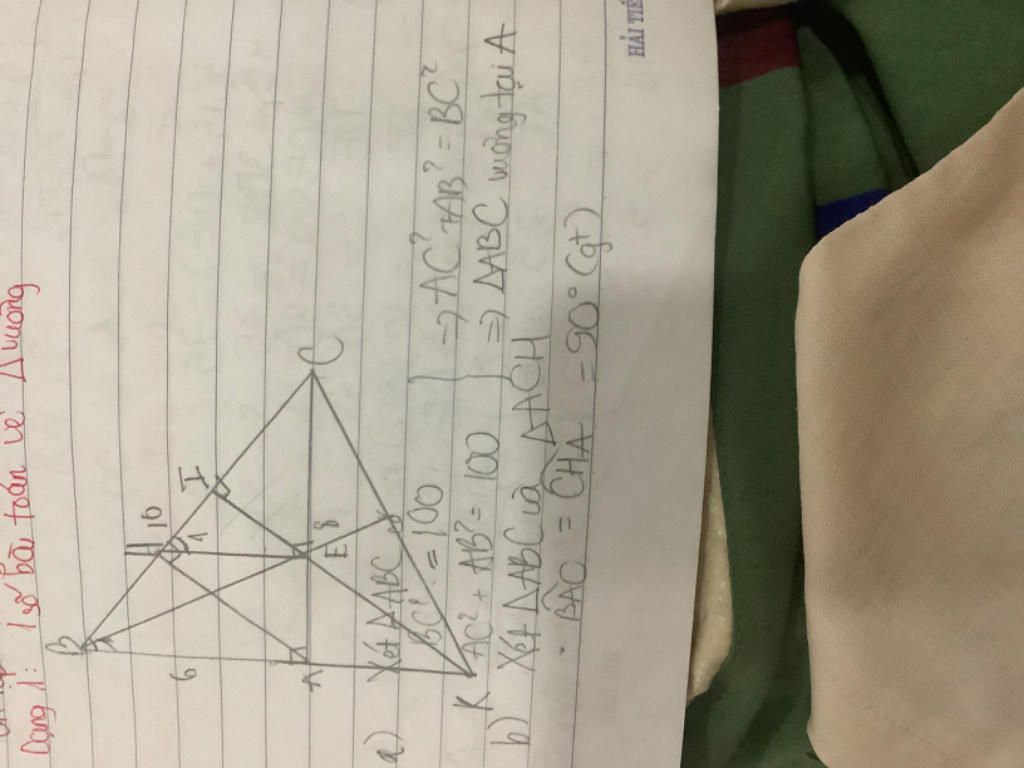 Dạng 1: 1 số bài toán về Δ vuông
B
6
10
I
1
H
A
E
8
C
K
a) Xét ΔABC
BC² = 100
AC² + AB² = 100
⇒ AC² + AB² = BC²
⇒ ΔABC vuông tại A
b) Xét ΔABC và ΔACH
BAC = CHA = 90° (gt)
HẢI TIẾ